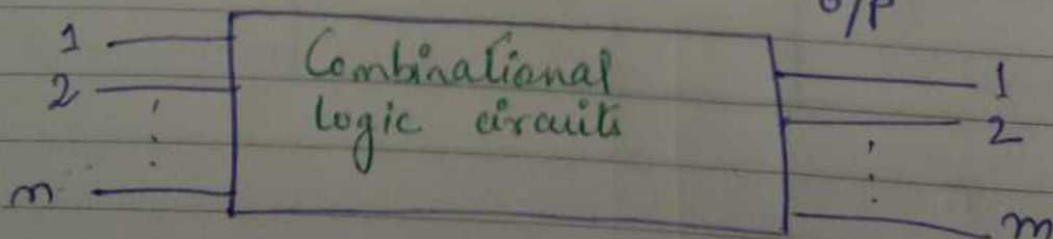 O/P
1 Combinational 1
2 logic circuits 2
n m